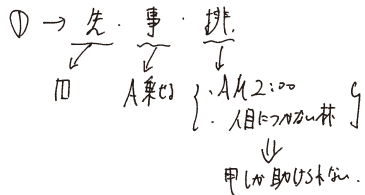 ① → 先・事・排.
甲 A乗せる { ・AM 2:00
・人目につかない林 }
⇓
甲しか助けられない.